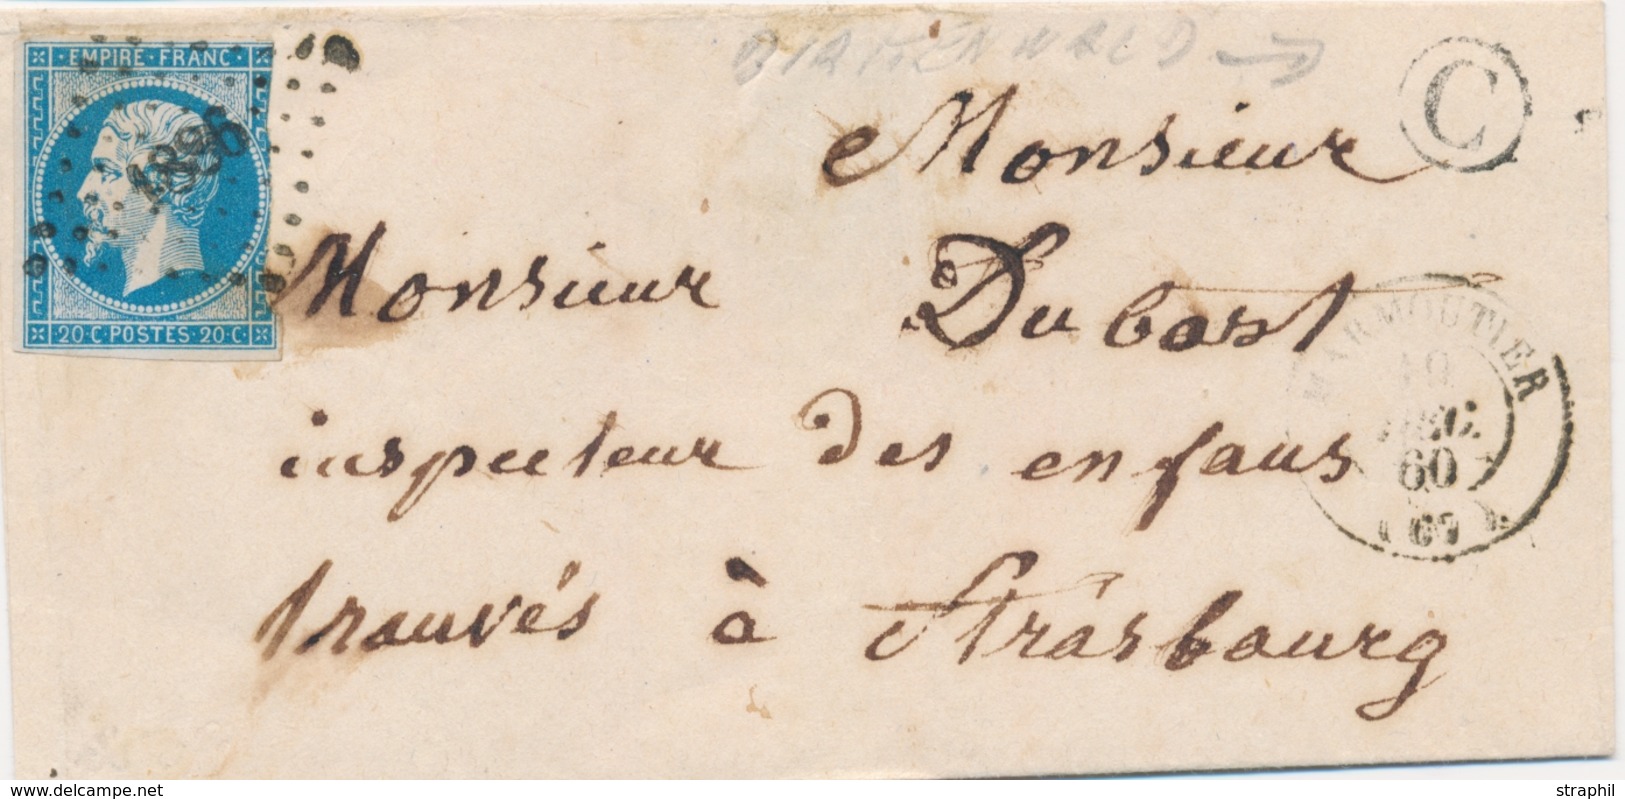 BIRKENWALD →
EMPIRE FRANC
1896
20·C·POSTES·20·C·
C
Monsieur
Monsieur Dubost
inspecteur des enfans
trouvés à Strasbourg
MARMOUTIER
DEC.
60
(67)
straphil